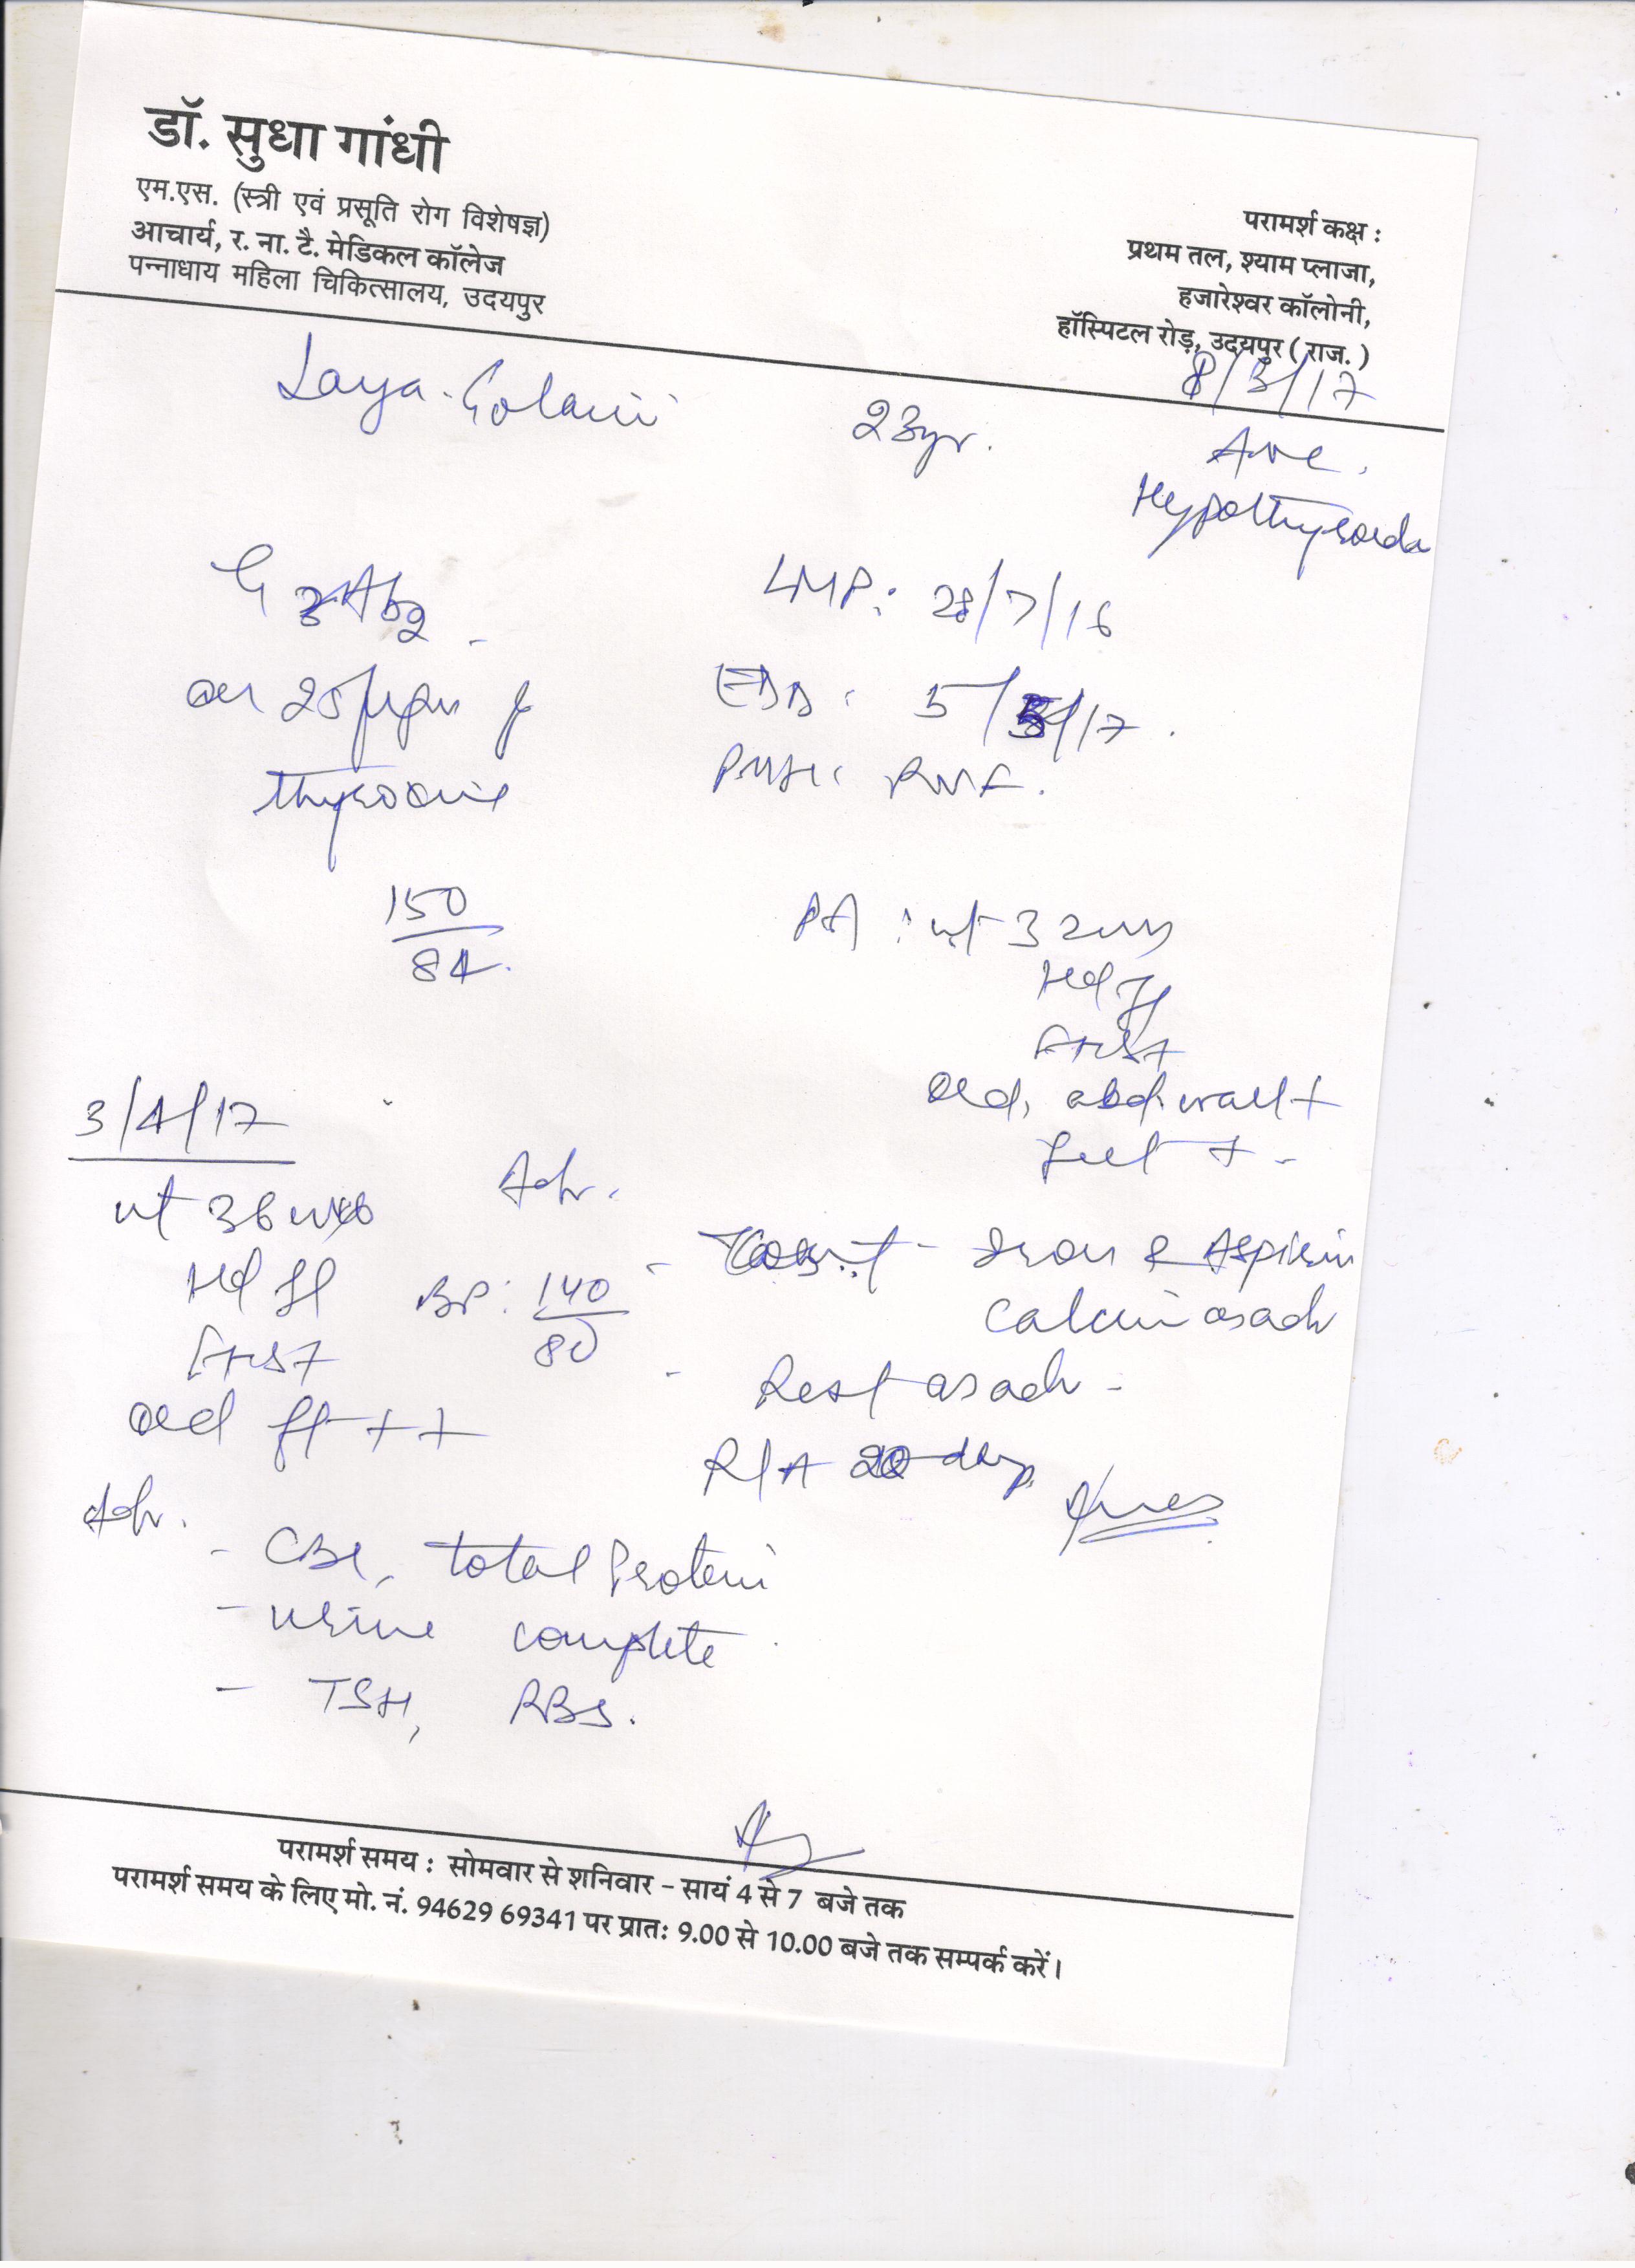 डॉ. सुधा गांधी
एम.एस. (स्त्री एवं प्रसूति रोग विशेषज्ञ)
आचार्य, र. ना. टै. मेडिकल कॉलेज
पन्नाधाय महिला चिकित्सालय, उदयपुर
परामर्श कक्ष :
प्रथम तल, श्याम प्लाजा,
हजारेश्वर कॉलोनी,
हॉस्पिटल रोड़, उदयपुर ( राज. )
8/3/17
23yr.
LMP: 28/7/16
EDD: 5/5/17.
on 25 μgm
thyroxine
150
84.
PA : ut 32 wks
Hd ff
FHS+
Oed. abd. wall +
feet +
Adv.
Iron & Aspirin
Calcium as adv
- Rest as adv -
R/A 20 days
3/4/17
ut 36 wks
Hd ff
FHS+
BP: 140
80
Oed ft ++
Adv.
- CBC, total Protein
- urine complete
- TSH, RBS.
परामर्श समय : सोमवार से शनिवार - सायं 4 से 7 बजे तक
परामर्श समय के लिए मो. नं. 94629 69341 पर प्रात: 9.00 से 10.00 बजे तक सम्पर्क करें।